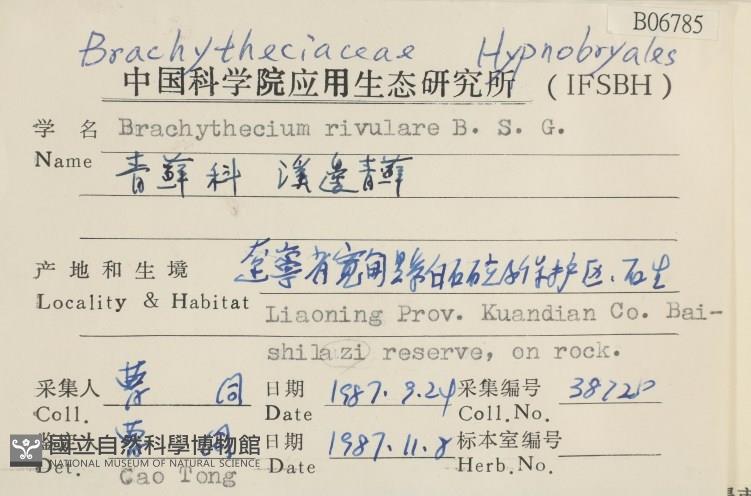 B06785
Brachytheciaceae Hypnobryales
中国科学院应用生态研究所 (IFSBH)
学 名 Brachythecium rivulare B. S. G.
Name 青藓科 溪邊青藓
产地和生境 辽寧省宽甸县白石砬子保护区、石生
Locality & Habitat Liaoning Prov. Kuandian Co. Bai-
shilazi reserve, on rock.
采集人 曹 同 日期 1987.9.24 采集编号
Coll. Date Coll.No.
曹 同 日期 1987.11.8 标本室编号
Det. Cao Tong Date Herb.No.
國立自然科學博物館
NATIONAL MUSEUM OF NATURAL SCIENCE